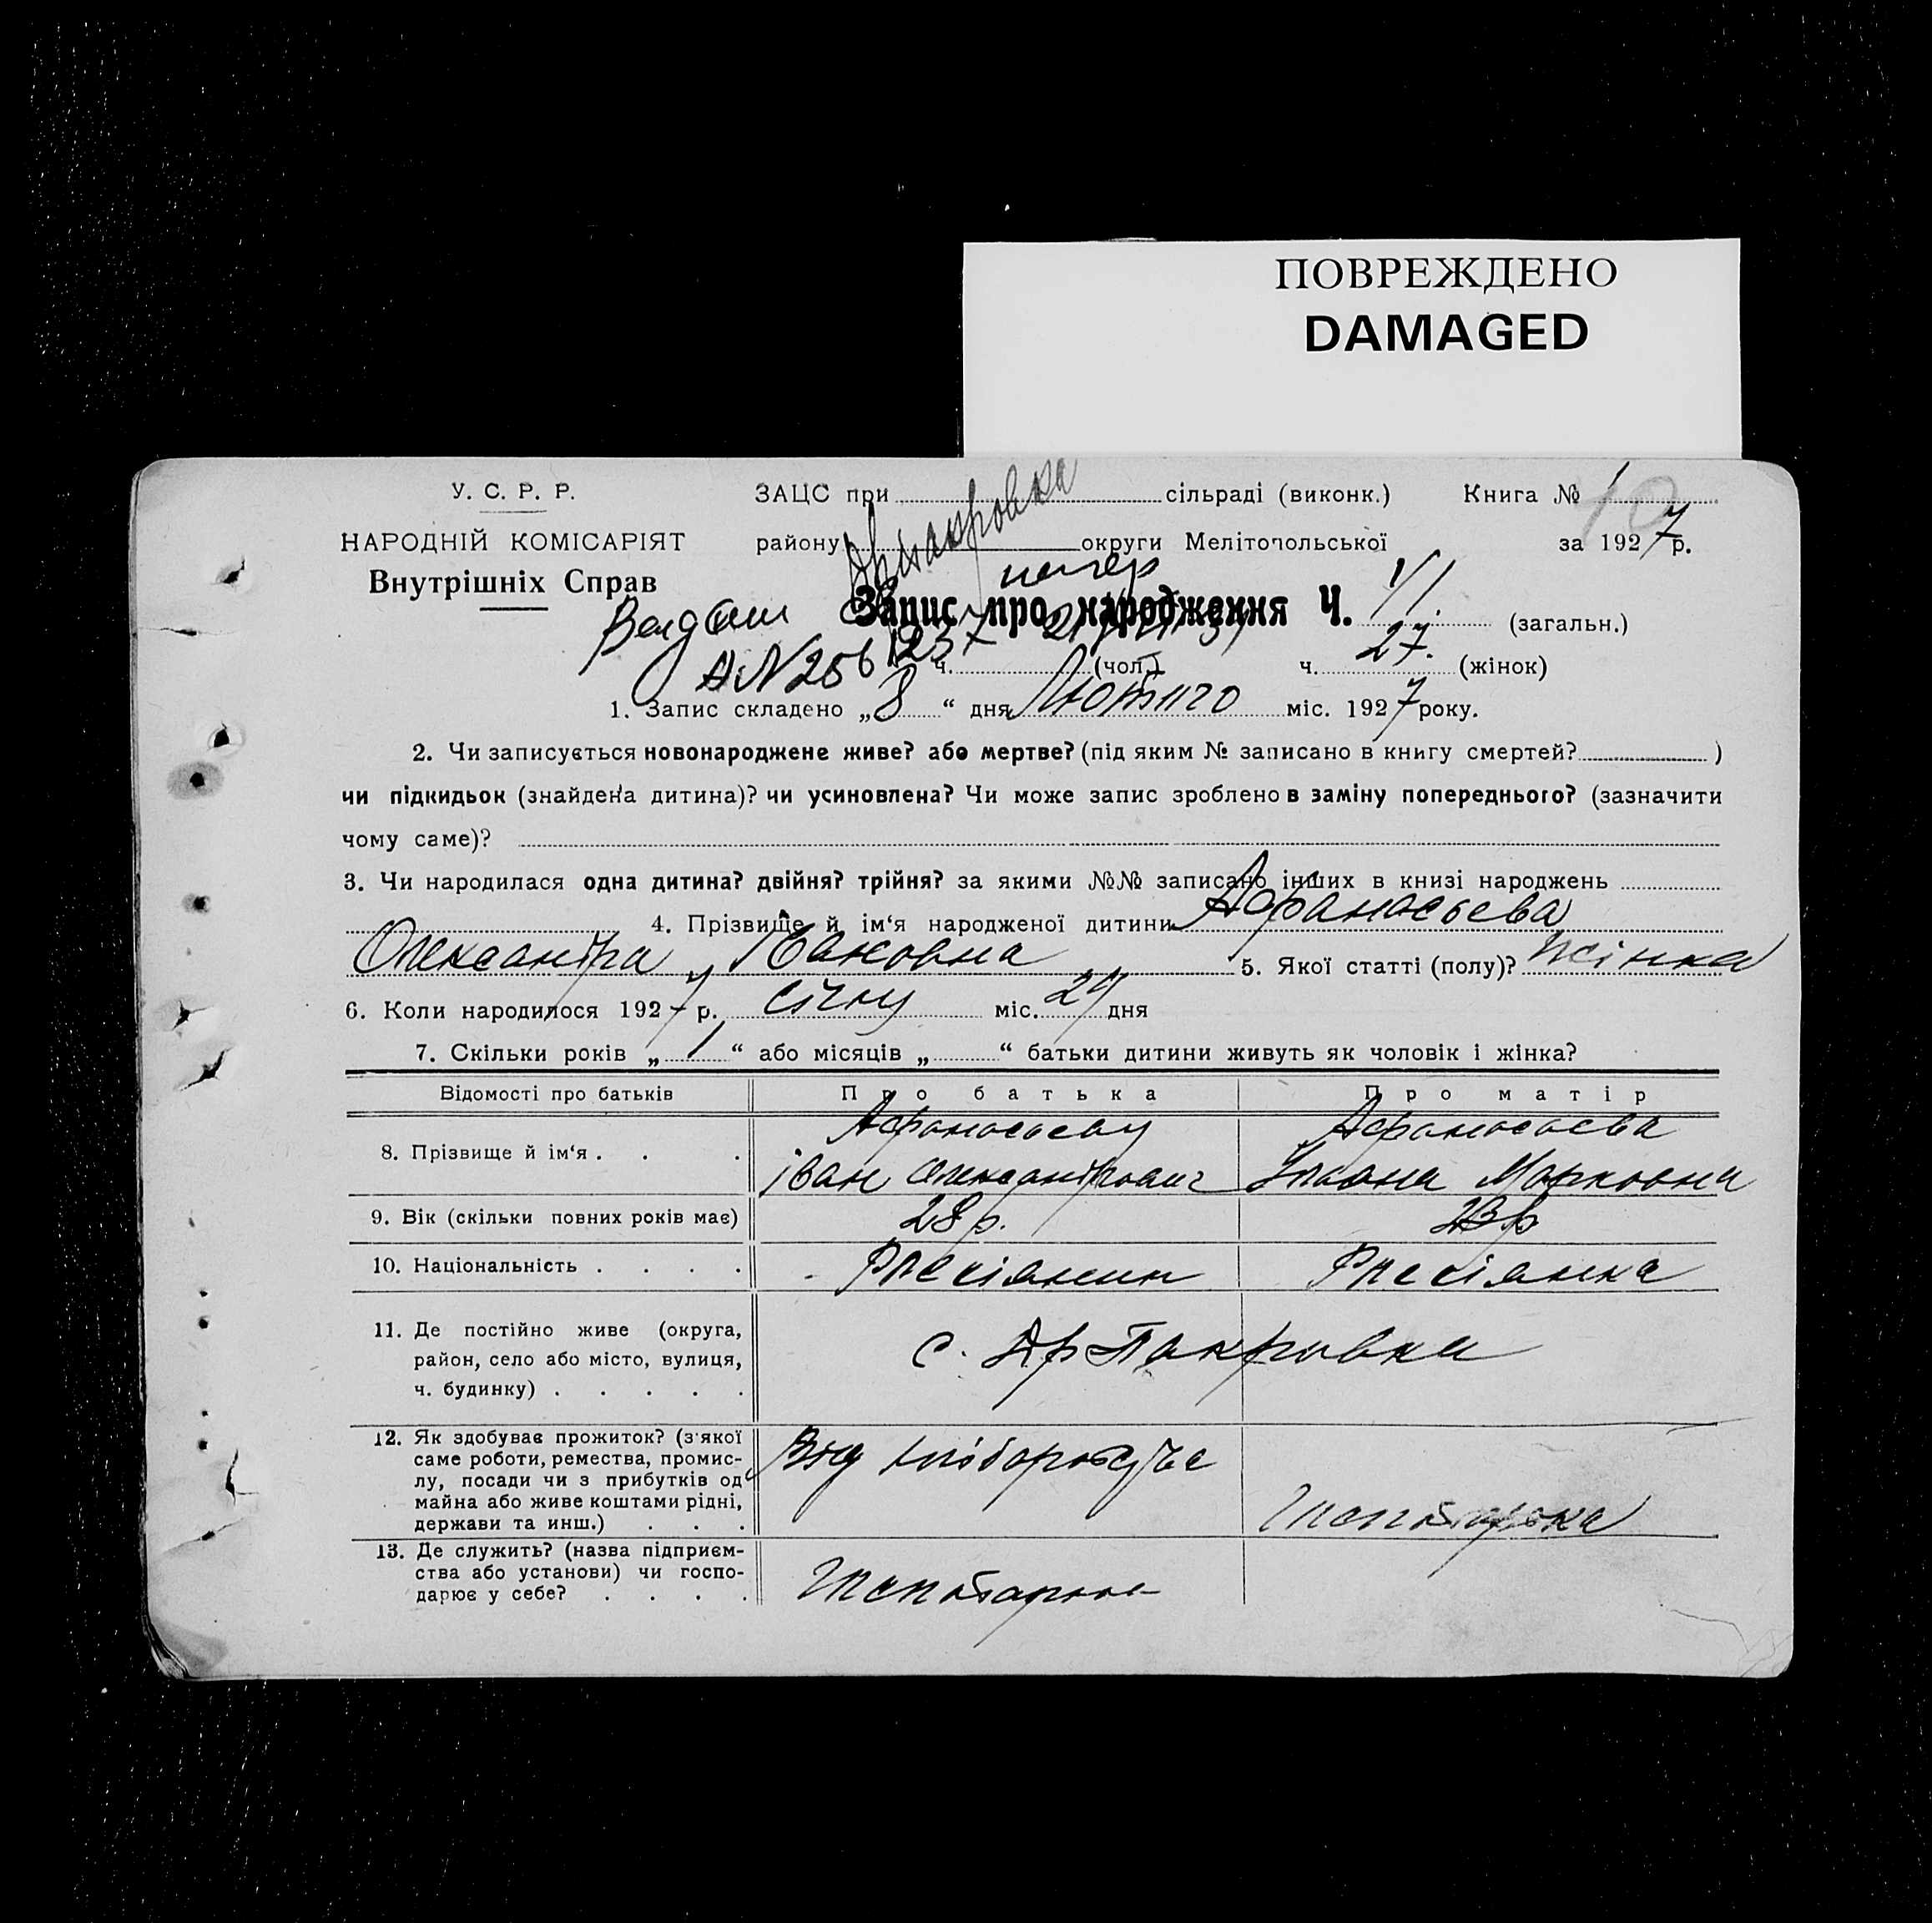 ПОВРЕЖДЕНО
DAMAGED
У. С. Р. Р.
ЗАЦС при сільраді (виконк.) Книга №
НАРОДНІЙ КОМІСАРІЯТ
району округи Мелітопольської за 1927 р.
Внутрішніх Справ
Запис про народження Ч. (загальн.)
А N 256 ч. (чол.) ч. 27. (жінок)
1. Запис складено „8“ дня Лютого міс. 1927 року.
2. Чи записується новонароджене живе? або мертве? (під яким № записано в книгу смертей? )
чи підкидьок (знайдена дитина)? чи усиновлена? Чи може запис зроблено в заміну попереднього? (зазначити
чому саме)?
3. Чи народилася одна дитина? двійня? трійня? за якими №№ записано інших в книзі народжень
4. Прізвище й ім‘я народженої дитини Афанасьева
Олександра Івановна 5. Якої статті (полу)? жінка
6. Коли народилося 1927 р. січну міс. 29 дня
7. Скільки років „1“ або місяців „ “ батьки дитини живуть як чоловік і жінка?
Відомості про батьків Про батька Про матір
Афанасьев Афанасьева
8. Прізвище й ім‘я . . .
Іван Олександрович Уляна Марковна
9. Вік (скільки повних років має) 28 р. 23 р
10. Національність . . . . Росіянин Росіянка
11. Де постійно живе (округа,
район, село або місто, вулиця, с. Др Покровка
ч. будинку) . . . . .
12. Як здобуває прожиток? (з'якої
саме роботи, ремества, промис-
лу, посади чи з прибутків од
майна або живе коштами рідні,
держави та инш.) . . .
13. Де служить? (назва підприєм-
ства або установи) чи госпо-
дарює у себе? . . . .